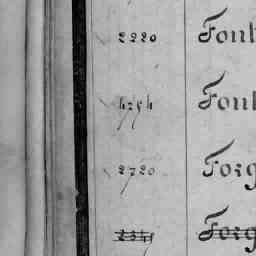 2220 Font
4254 Font
2720 Forg
2341 Forg